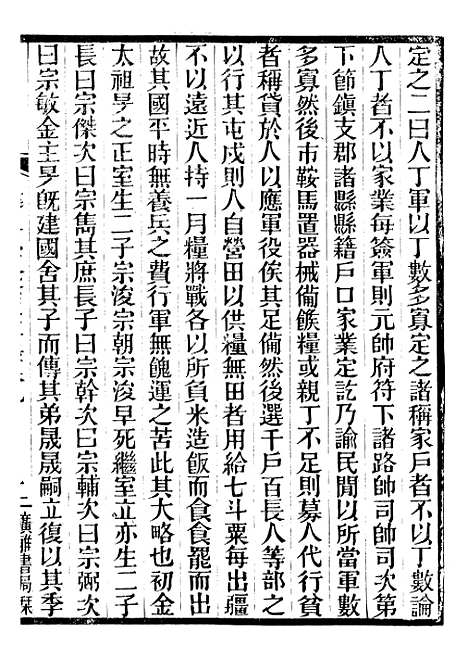 定之二曰人丁軍以丁數多寡定之諸稱家戶者不以丁數論
人丁者不以家業每簽軍則元帥府符下諸路帥司帥司次第
下節鎮支郡諸縣縣籍戶口家業定訖乃諭民間以所當軍數
多寡然後市鞍馬置器械備餱糧或親丁不足則募人代行貧
者稱貸於人以應軍役俟其足備然後選千戶百長人等部之
以行其屯戍則人自營田以供糧無田者用給七斗粟每出疆
不以遠近人持一月糧將戰各以所負米造飯而食食罷而出
故其國平時無養兵之費行軍無餽運之苦此其大略也初金
太祖旻之正室生二子宗浚宗朝宗浚早死繼室立亦生二子
長曰宗傑次曰宗雋其庶長子曰宗幹次曰宗輔次曰宗弼次
曰宗敏金主旻旣建國舍其子而傳其弟晟晟嗣立復以其季
二廣雅書局栞